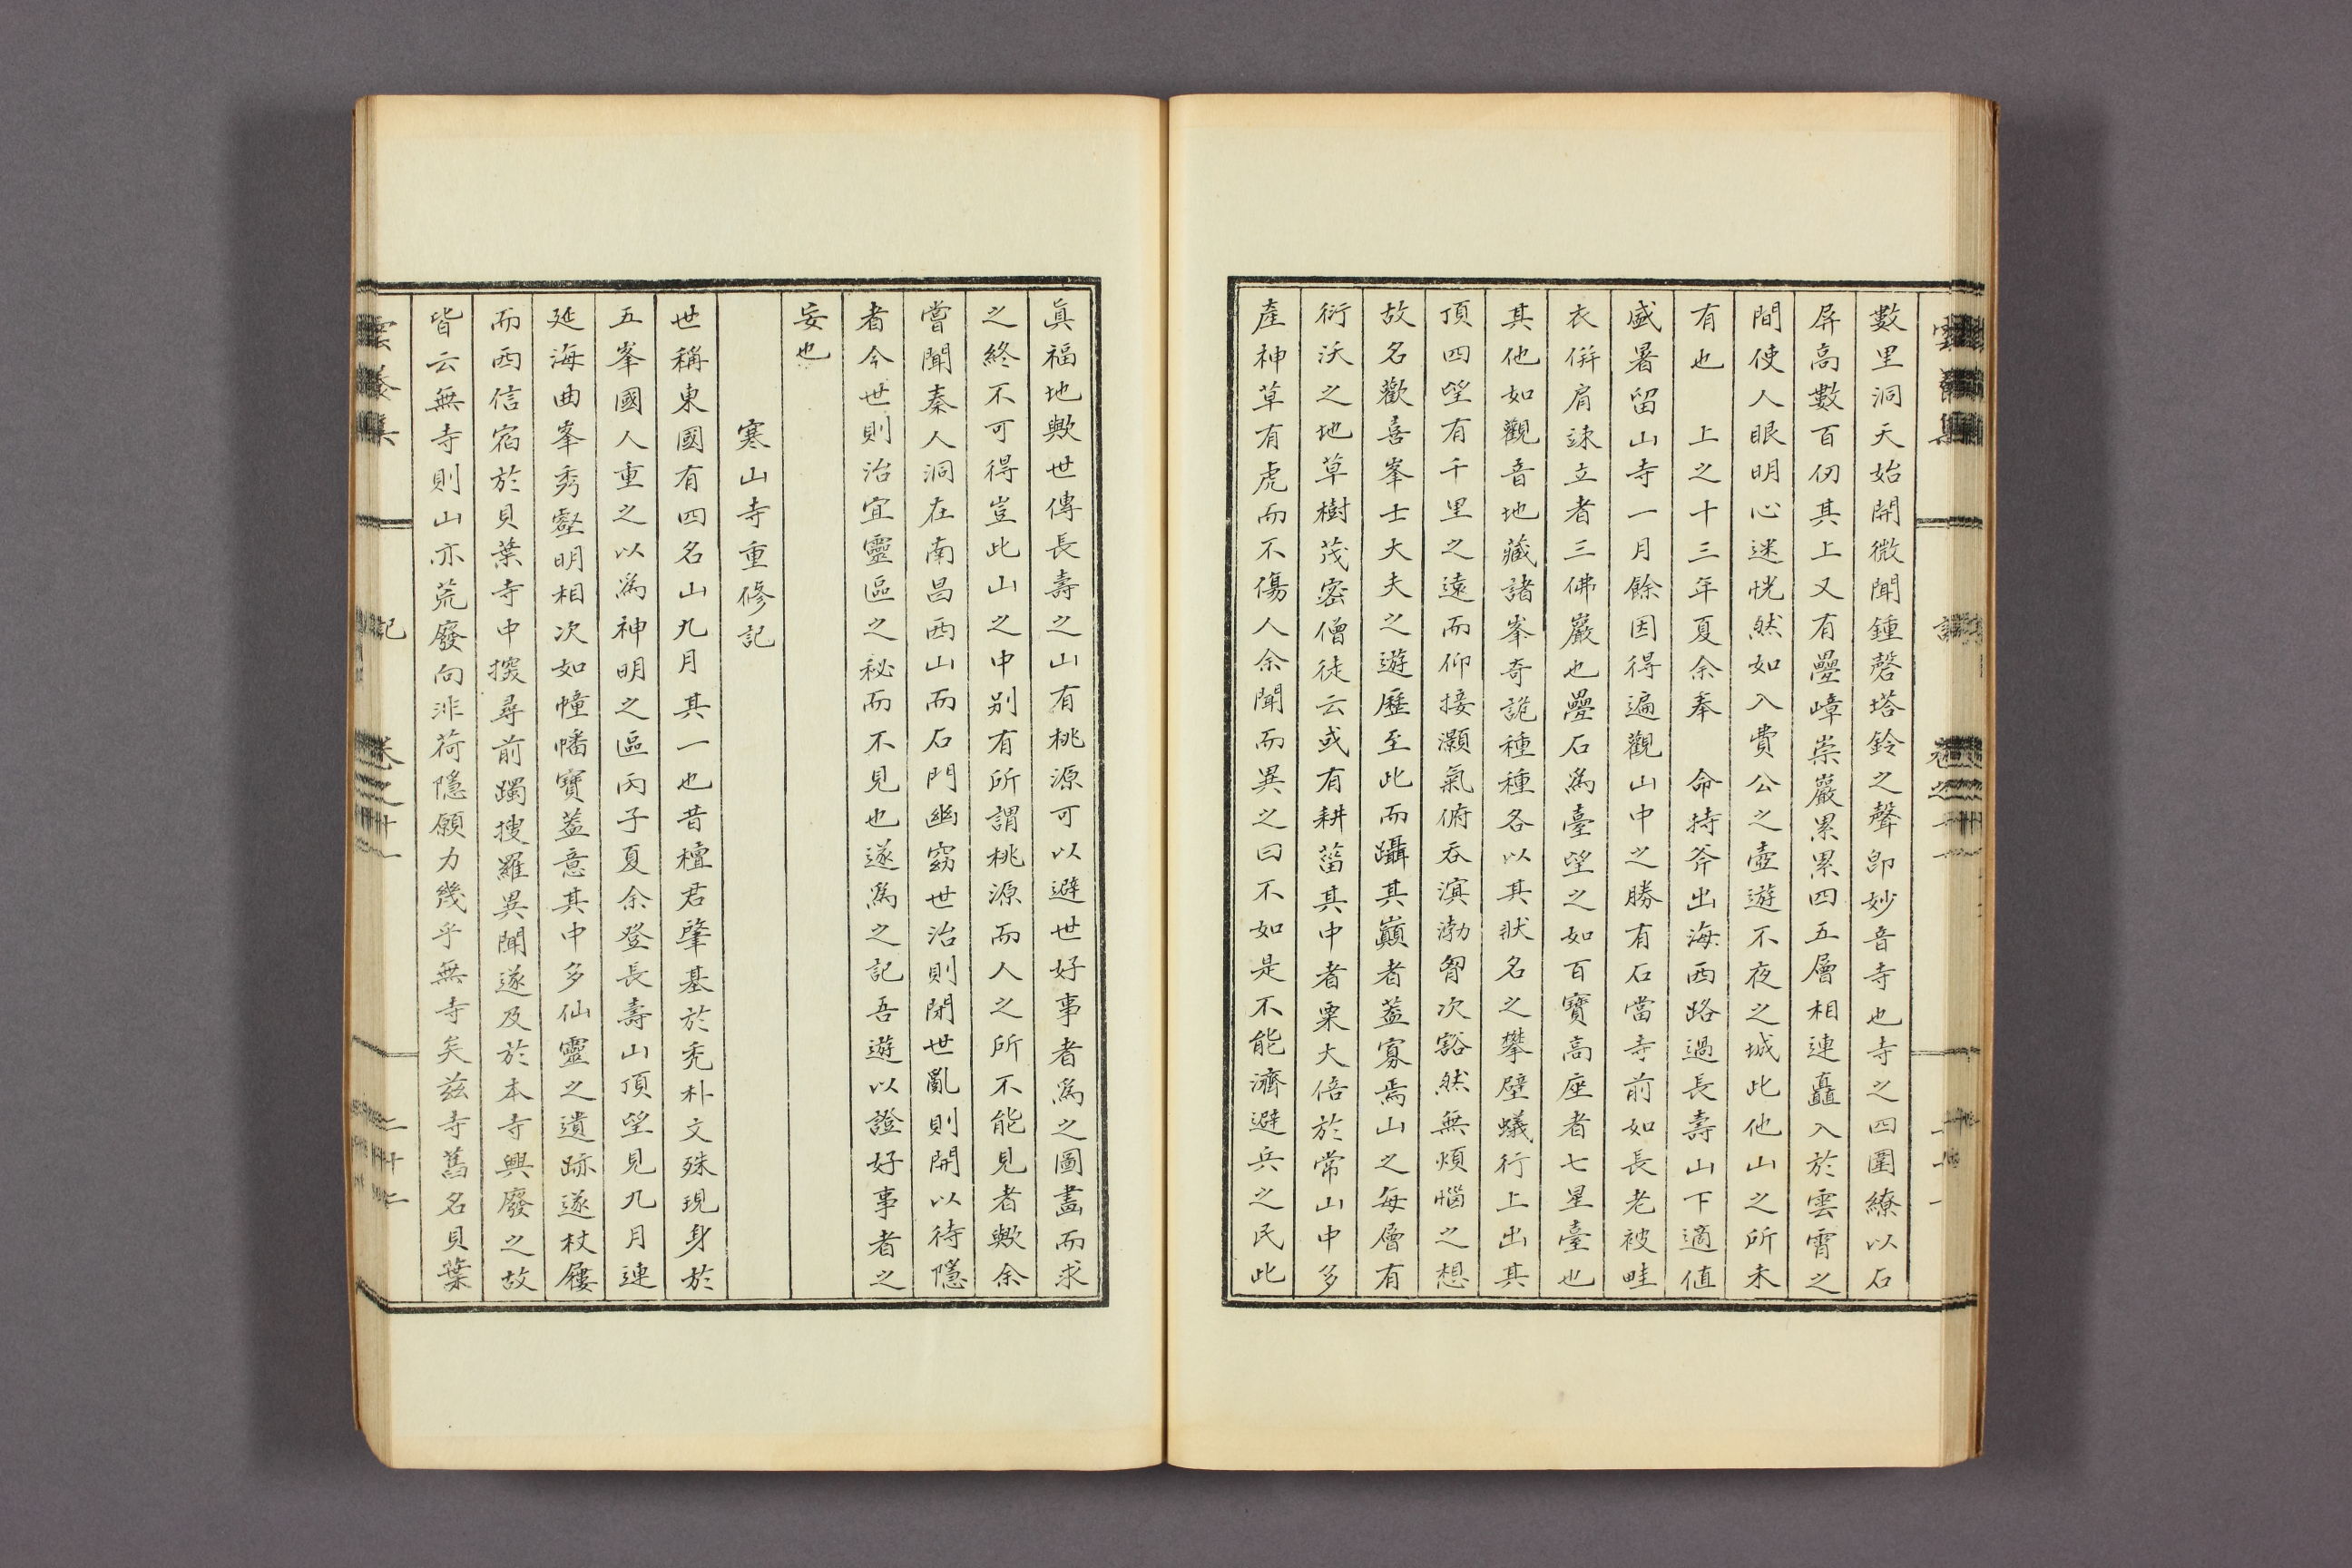 數里洞天始開微聞鍾磬塔鈴之聲卽妙音寺也寺之四圍繚以石
屛高數百仞其上又有疊嶂崇巖累累四五層相連矗入於雲霄之
間使人眼明心迷恍然如入費公之壺遊不夜之城此他山之所未
有也　上之十三年夏余奉　命持斧出海西路過長壽山下適值
盛暑留山寺一月餘因得遍觀山中之勝有石當寺前如長老被畦
衣倂肩竦立者三佛巖也疊石爲臺望之如百寶高座者七星臺也
其他如觀音地藏諸峯奇詭種種各以其狀名之攀壁蟻行上出其
頂四望有千里之遠而仰接灝氣俯呑溟渤胷次豁然無煩惱之想
故名歡喜峯士大夫之遊歷至此而躡其巓者蓋寡焉山之每層有
衍沃之地草樹茂密僧徒云或有耕菑其中者粟大倍於常山中多
產神草有虎而不傷人余聞而異之曰不如是不能濟避兵之民此
眞福地歟世傳長壽之山有桃源可以避世好事者爲之圖畫而求
之終不可得豈此山之中别有所謂桃源而人之所不能見者歟余
嘗聞秦人洞在南昌西山而石門幽窈世治則閉世亂則開以待隱
者今世則治宜靈區之秘而不見也遂爲之記吾遊以證好事者之
妄也
寒山寺重修記
世稱東國有四名山九月其一也昔檀君肇基於禿朴文殊現身於
五峯國人重之以爲神明之區丙子夏余登長壽山頂望見九月連
延海曲峯秀壑明相次如幢幡寶蓋意其中多仙靈之遺跡遂杖屨
而西信宿於貝葉寺中探尋前躅搜羅異聞遂及於本寺興廢之故
皆云無寺則山亦荒廢向非荷隱願力幾乎無寺矣玆寺舊名貝葉
記
卷之十一
二十二